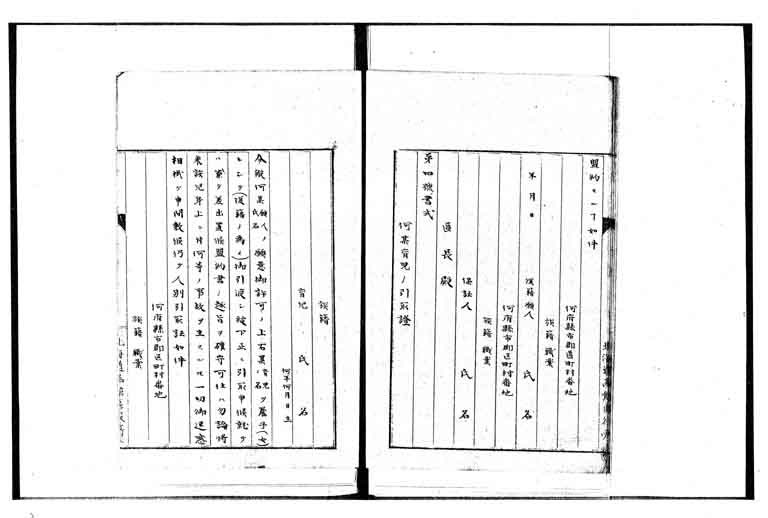 盟約スル一ト如件
何府縣市郡区町村番地
族籍 職業
年月日 復籍願人 氏名
何府縣市郡区町村番地
族籍 職業
保証人 氏名
區長殿
第四號書式
何某育児ノ引取證
族籍
育児 氏名
何年何月日生
今般何某願人ノ願意御許可ノ上右某育児ヲ養子(女)
氏名
トシテ(復籍ノ為メ)御引渡シ被下正ニ引取申候就テ
ハ差出置候盟約書ノ趣旨ヲ確守可仕ハ勿論将
来該児身上ニ付何等ノ事故ヲ生スルモ一切御迷惑
相掛ケ申間敷候仍テ人別引取証如件
何府縣市郡区町村番地
族籍 職業